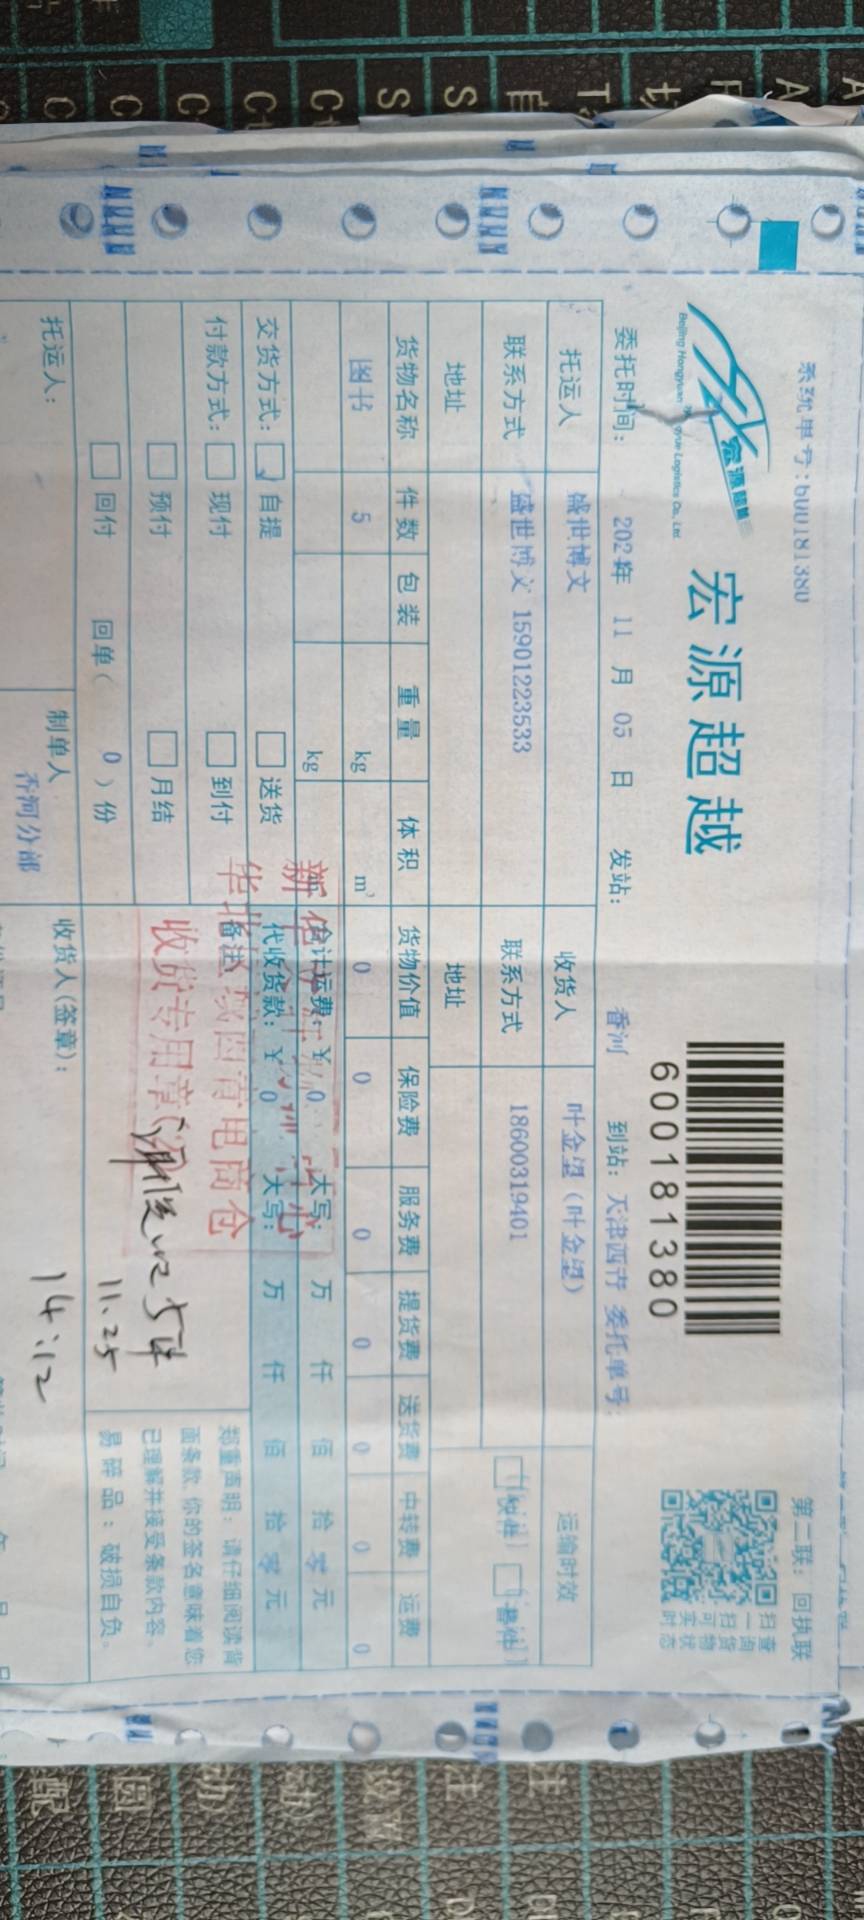 系统单号:600181380
第二联：回执联
宏源超越
宏源超越
600181380
扫一扫可实时
查询货物状态
委托时间： 2024年 11 月 05 日 发站： 香河 到站：天津西青 委托单号：
托运人 盛世博文 收货人 叶金望（叶金望） 运输时效
联系方式 盛世博文 15901223533 联系方式 18600319401
地址 地址
货物名称 件数 包装 重量 体积 货物价值 保险费 服务费 提货费 送货费 中转费 运费
图书 5 kg m³ 0 0 0 0 0 0 0
kg 合计运费：￥ 0 大写： 万 仟 佰 拾 零 元
交货方式： 自提 送货 代收货款：￥ 0 大写： 万 仟 佰 拾 零 元
付款方式： 现付 到付 备注
预付 月结
回付 回单（ 0 ）份
收货专用章
11.25
14:12
郑重声明：请仔细阅读背
面条款,你的签名意味着您
已理解并接受条款内容。
易碎品：破损自负。
托运人： 制单人 收货人(签章)：
香河分部